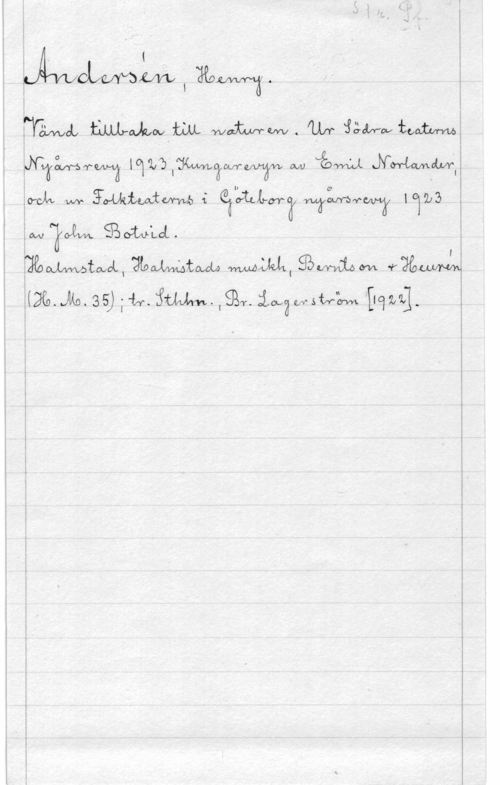 Andersén, Henry.
Vänd tillbaka till naturen. Ur Södra teaterns
Nyårsrevy 1923, Kungarevyn av Emil Norlander,
och ur Folkteaterns i Göteborg nyårsrevy 1923
av John Botvid.
Halmstad, Halmstads musikh, Berntson + Heurén
(H. M. 35); tr. Sthhm., Br. Lagerström [1922].